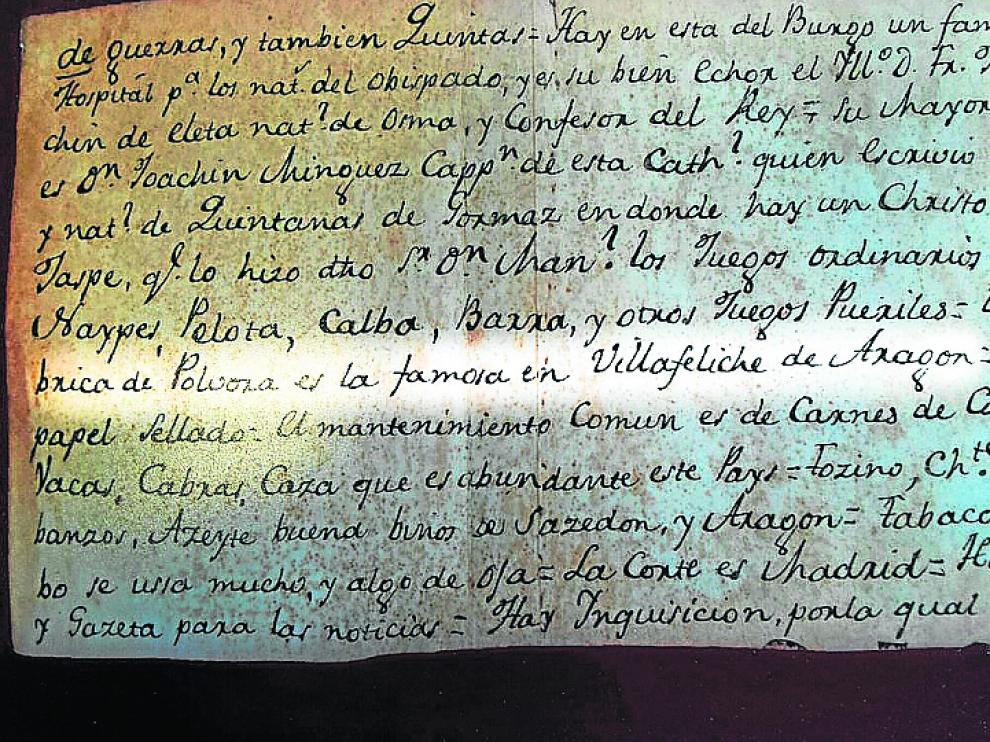 de guerras, y tambien Quintas = Hay en esta del Burgo un fam
Hospital pa. los natˢ. del obispado, y es su bien echor el Yllo. D. Fr.o
chin de eleta nat.l de Osma, y Confesor del Rey = su Mayor
es Dn. Joachin Minguez Cappn de esta Cath.l quien escrivio
y nat.l de Quintanas de Gormaz en donde hay un Christo
Jaspe, q.e lo hizo dho Sr. Dn Man.l los Juegos ordinarios
Naypes, Pelota, Calba, Barra, y otros Juegos Pueriles =
brica de Polvora es la famosa en Villafeliche de Aragon =
papel sellado = El mantenimiento Comun es de Carnes de Ca
Vacas, Cabras, Caza que es abundante este Pays = Tozino, Ch.ts
banzos, Azeyte buena binos de Sazedon, y Aragon = Tabaco
bo se usa mucho, y algo de oja = La Corte es Madrid =
y Gazeta para las noticias = Hay Inquisicion, porla qual